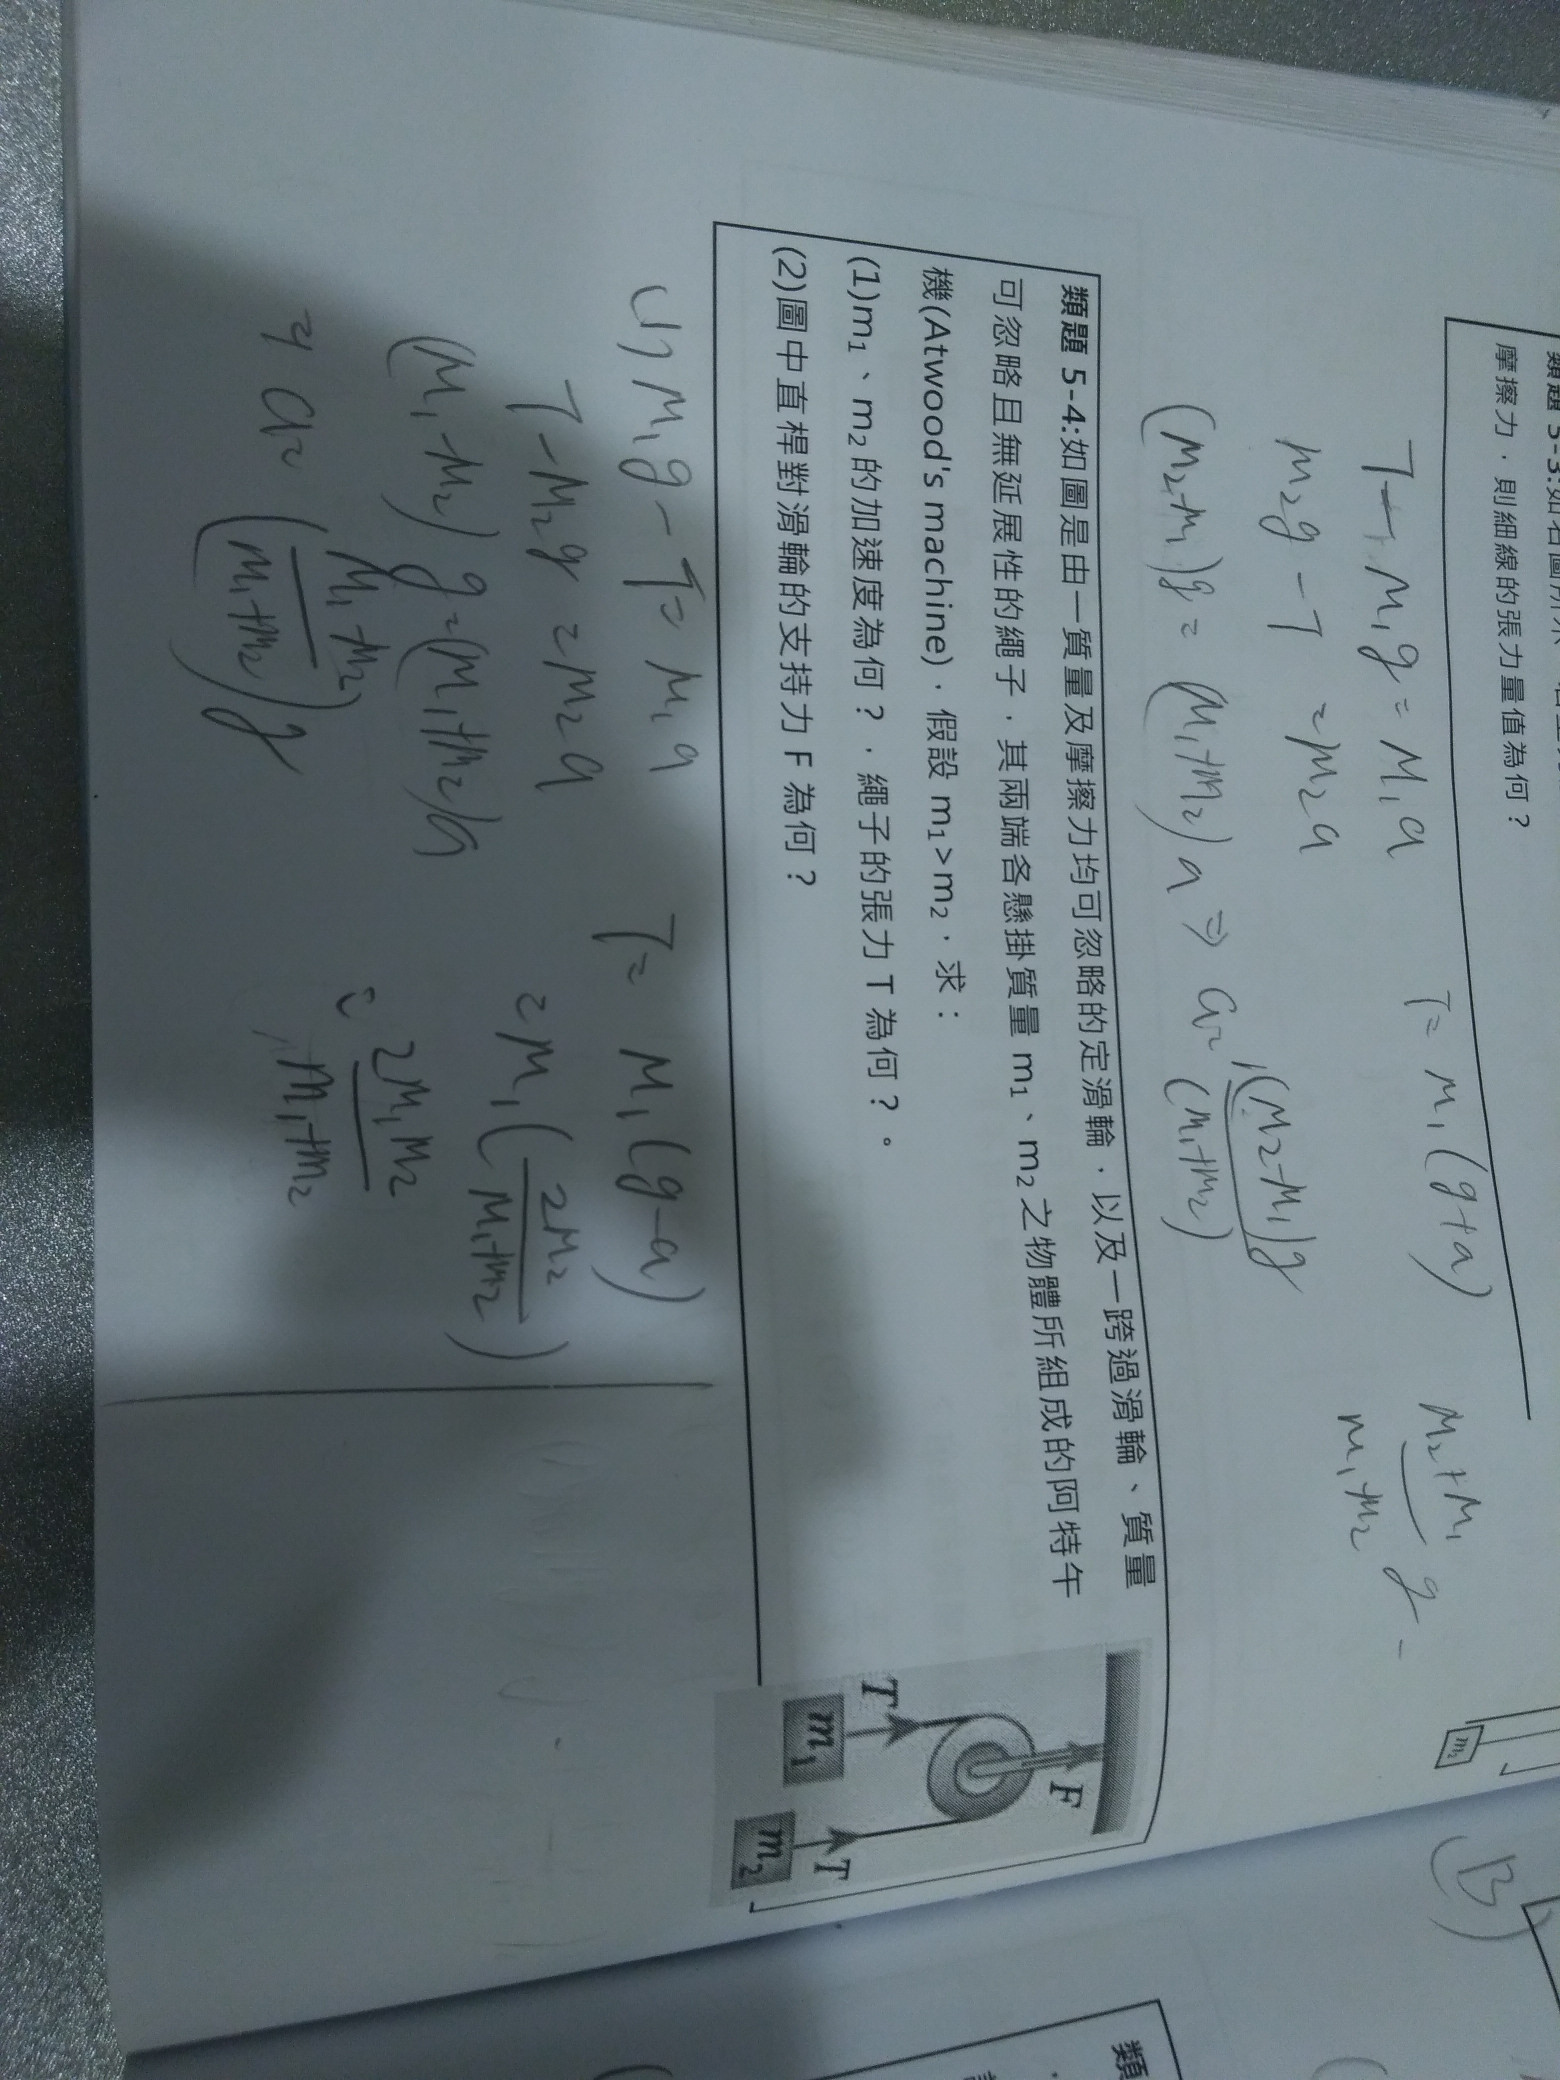 摩擦力，則細線的張力量值為何？
T - m₁g = m₁a
m₂g - T = m₂a
(m₂-m₁)g = (m₁+m₂)a ⇒ a = (m₂-m₁)g / (m₁+m₂)
T = m₁(g+a)
m₂+m₁ / m₁+m₂ g -
m₂
類題 5-4:如圖是由一質量及摩擦力均可忽略的定滑輪，以及一跨過滑輪、質量
可忽略且無延展性的繩子，其兩端各懸掛質量 m₁、m₂之物體所組成的阿特午
機(Atwood's machine)，假設 m₁>m₂，求：
(1)m₁、m₂的加速度為何？，繩子的張力 T 為何？。
(2)圖中直桿對滑輪的支持力 F 為何？
F
T
T
m₁
m₂
(1) m₁g - T = m₁a
T - m₂g = m₂a
(m₁-m₂)g = (m₁+m₂)a
⇒ a = (m₁-m₂ / m₁+m₂)g
T = m₁(g-a)
= m₁(2m₂ / m₁+m₂)
= 2m₁m₂ / m₁+m₂
(B)
類